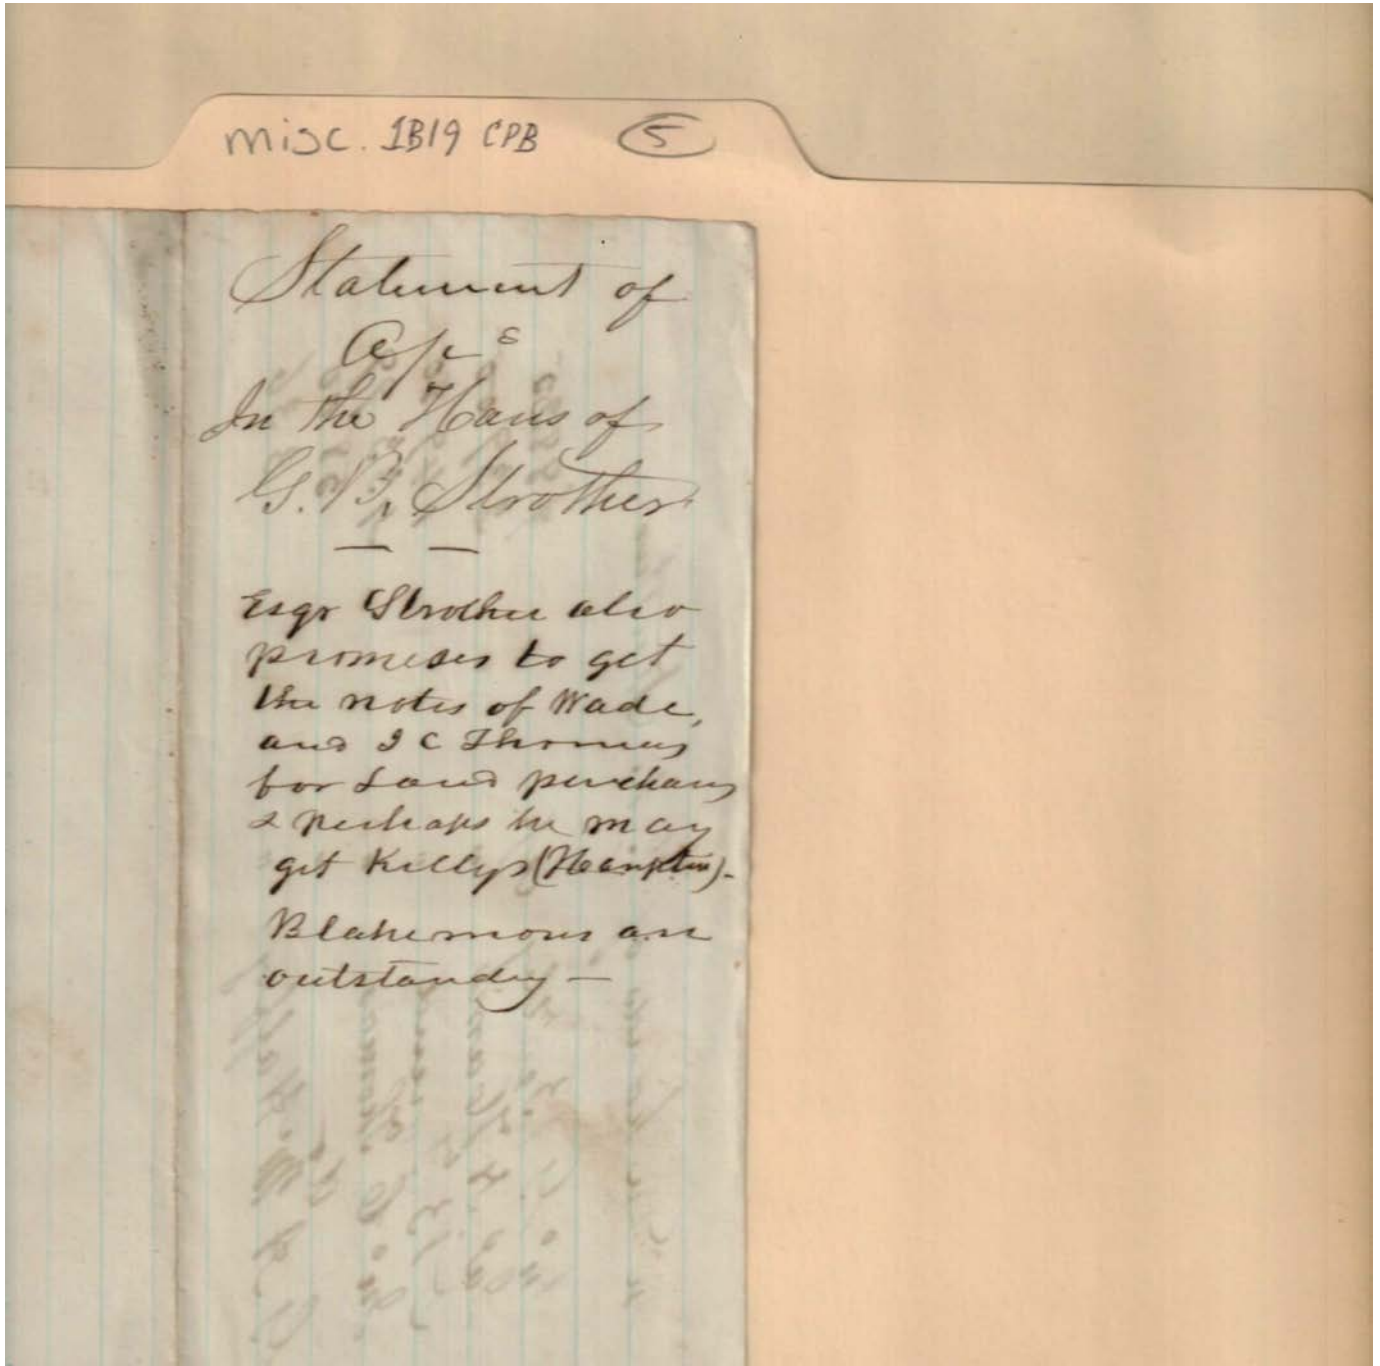 misc. 1B19 CPB 5
Statement of
In the Hans of
G. B. Strother
Esqr Strother also
promeses to get
the notes of Wade,
and J C Thomas
for Land purchas
& perhaps he may
get Kellys (Hampton).
Blakemores are
outstandg —